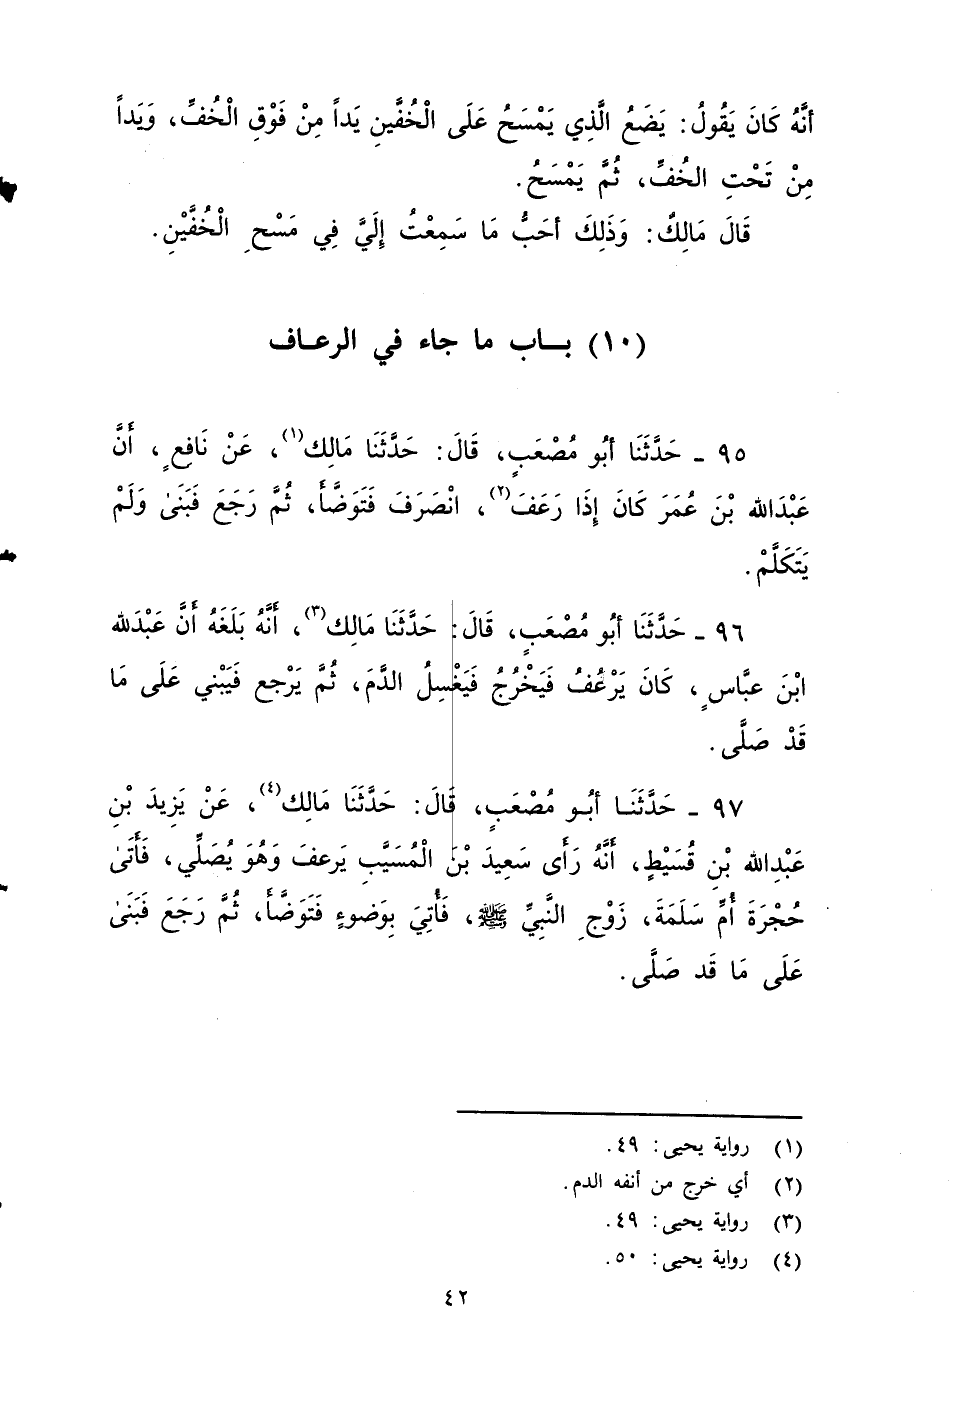 أنَّهُ كَانَ يَقُولُ: يَضَعُ الَّذِي يَمْسَحُ عَلَى الْخُفَّينِ يَداً مِنْ فَوْقِ الْخُفِّ، وَيَداً
مِنْ تَحْتِ الخُفِّ، ثُمَّ يَمْسَحُ.
قَالَ مَالِكٌ: وَذَلِكَ أحَبُّ مَا سَمِعْتُ إِلَيَّ فِي مَسْحِ الْخُفَّيْنِ.
(١٠) بـاب ما جاء في الرعـاف
٩٥ ـ حَدَّثَنَا أبُو مُصْعَبٍ، قَالَ: حَدَّثَنَا مَالِك(١)، عَنْ نَافِعٍ، أَنَّ
عَبْدَالله بْنَ عُمَرَ كَانَ إِذَا رَعَفَ(٢)، انْصَرَفَ فَتَوَضَّأَ، ثُمَّ رَجَعَ فَبَنَىٰ وَلَمْ
يَتَكَلَّمْ.
٩٦ ـ حَدَّثَنَا أبُو مُصْعَبٍ، قَالَ: حَدَّثَنَا مَالِك(٣)، أَنَّهُ بَلَغَهُ أَنَّ عَبْدَالله
ابْنَ عبَّاسٍ، كَانَ يَرْعُفُ فَيَخْرُجُ فَيَغْسِلُ الدَّمَ، ثُمَّ يَرْجع فَيَبْني عَلَى مَا
قَدْ صَلَّى.
٩٧ ـ حَدَّثَنَـا أبُـو مُصْعَبٍ، قَالَ: حَدَّثَنَا مَالك(٤)، عَنْ يَزِيدَ بْنِ
عَبْدِالله بْنِ قُسَيْطٍ، أَنَّهُ رَأى سَعِيدَ بْنَ الْمُسَيَّب يَرعفَ وَهُوَ يُصَلِّي، فَأَتَىٰ
حُجْرَةَ أُمِّ سَلَمَةَ، زَوْجِ النَّبيِّ ﷺ، فَأُتِيَ بِوَضوءٍ فَتَوَضَّأَ، ثُمَّ رَجَعَ فَبَنَىٰ
عَلَى مَا قَد صَلَّى.
(١) رواية يحيى: ٤٩.
(٢) أي خرج من أنفه الدم.
(٣) رواية يحيى: ٤٩.
(٤) رواية يحيى: ٥٠.
٤٢